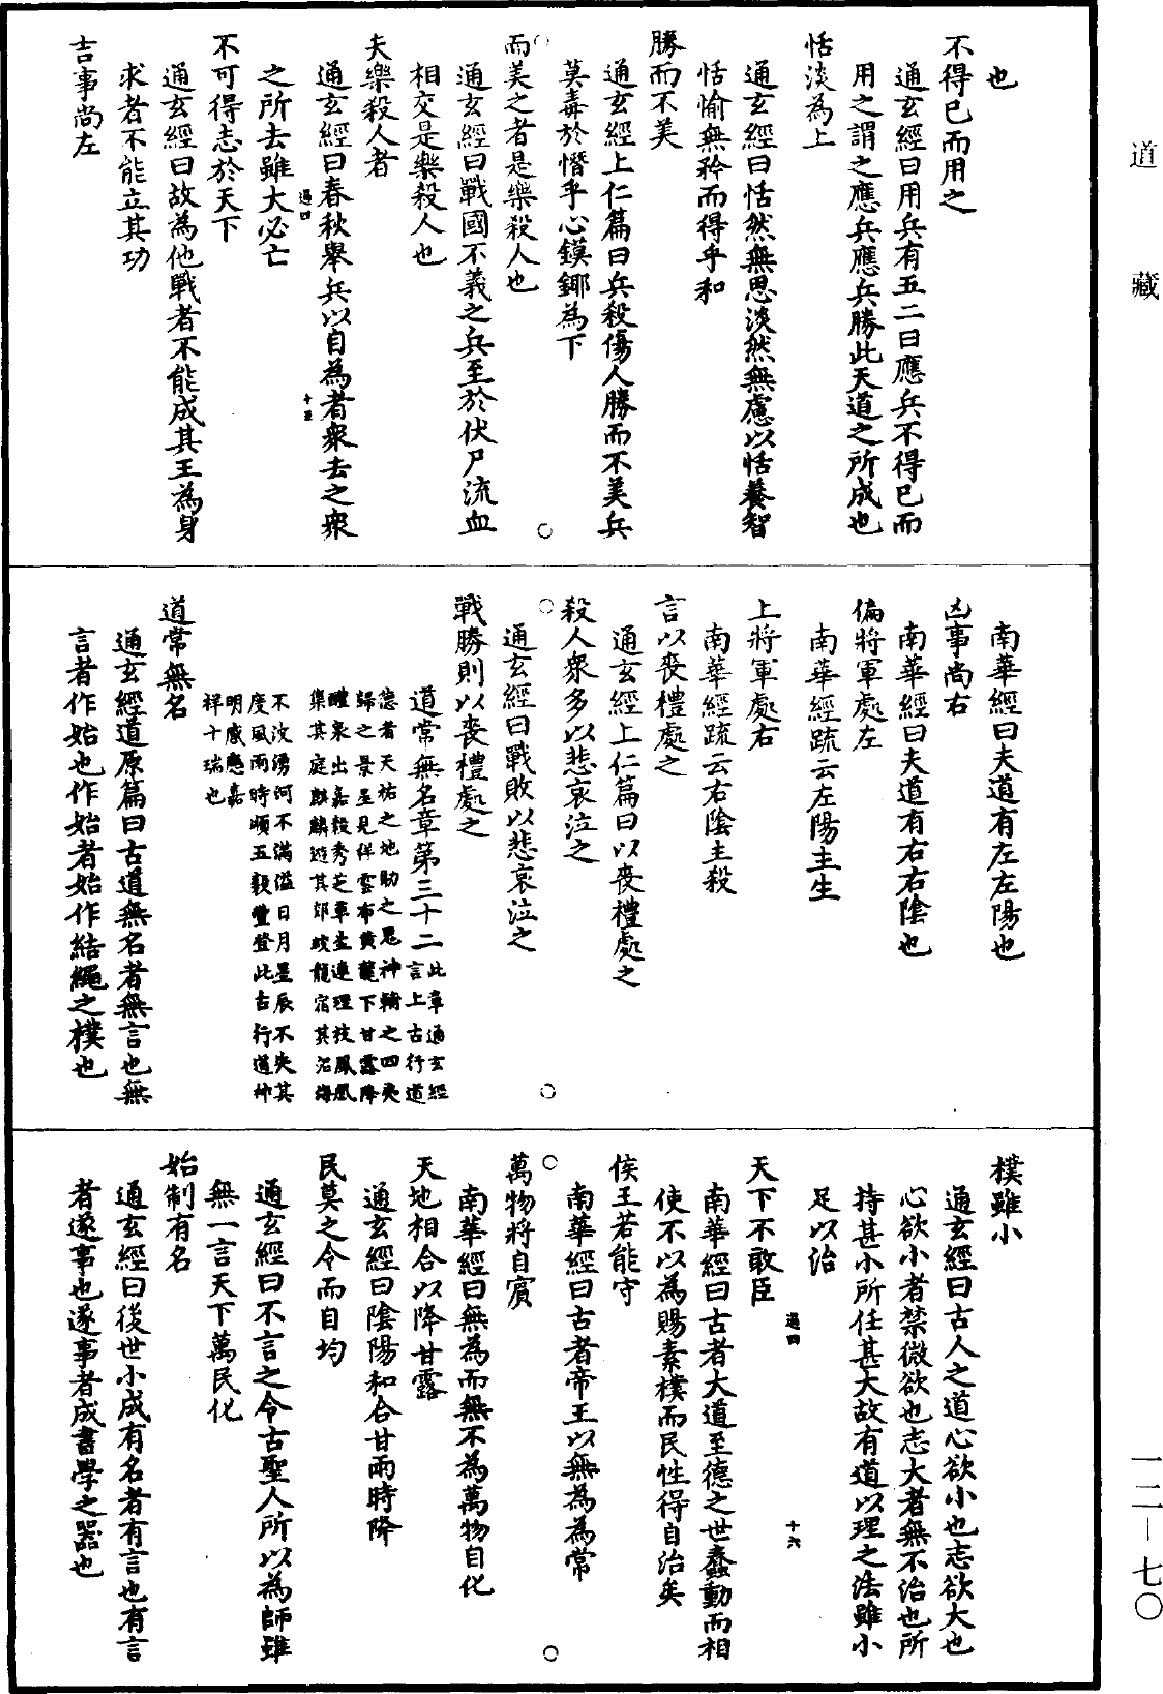 道藏
一二—七〇
也
不得已而用之
通玄經曰用兵有五二曰應兵不得已而
用之謂之應兵應兵勝此天道之所成也
恬淡為上
通玄經曰恬然無思淡然無慮以恬養智
恬愉無矜而得乎和
勝而不美
通玄經上仁篇曰兵殺傷人勝而不美兵
莫毒於憯乎心鏌鎁為下
而美之者是樂殺人也
通玄經曰戰國不義之兵至於伏尸流血
相交是樂殺人也
夫樂殺人者
通玄經曰春秋舉兵以自為者衆去之衆
過四 十五
之所去雖大必亡
不可得志於天下
通玄經曰故為他戰者不能成其王為身
求者不能立其功
吉事尚左
南華經曰夫道有左左陽也
凶事尚右
南華經曰夫道有右右陰也
偏將軍處左
南華經疏云左陽主生
上將軍處右
南華經疏云右陰主殺
言以喪禮處之
通玄經上仁篇曰以喪禮處之
殺人衆多以悲哀泣之
通玄經曰戰敗以悲哀泣之
戰勝則以喪禮處之
道常無名章第三十二此章通玄經
言上古行道
悳者天祐之地助之鬼神輔之四夷
歸之景星見佯雲布黄龍下甘露降
醴泉出嘉穀秀芝草生連理枝鳳凰
集其庭麒麟遊其郊蛟龍宿其沼海
不波湧河不滿溢日月星辰不失其
度風雨時順五穀豐登此古行道神
明感應嘉
祥十瑞也
道常無名
通玄經道原篇曰古道無名者無言也無
言者作始也作始者始作結繩之樸也
樸雖小
通玄經曰古人之道心欲小也志欲大也
心欲小者禁微欲也志大者無不治也所
持甚小所任甚大故有道以理之法雖小
足以治
過四 十六
天下不敢臣
南華經曰古者大道至德之世蠢動而相
使不以為賜素樸而民性得自治矣
侯王若能守
南華經曰古者帝王以無為為常
萬物將自賓
南華經曰無為而無不為萬物自化
天地相合以降甘露
通玄經曰陰陽和合甘雨時降
民莫之令而自均
通玄經曰不言之令古聖人所以為師雖
無一言天下萬民化
始制有名
通玄經曰後世小成有名者有言也有言
者遂事也遂事者成書學之器也